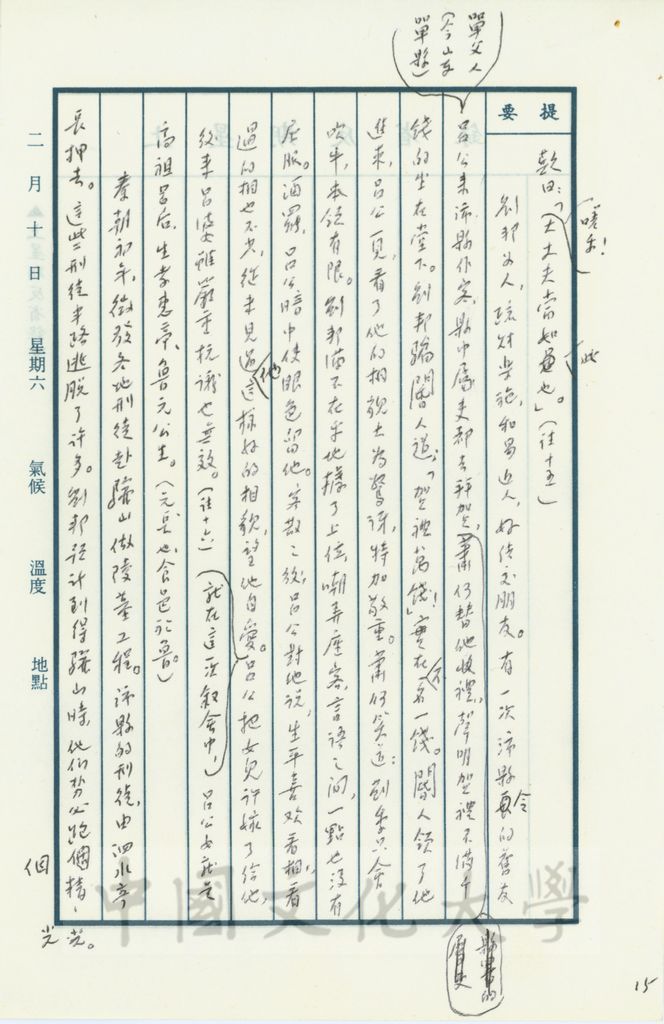 單父人
（今山東
單縣）
提要
歎曰：「嗟乎！大丈夫當如此也。」（註十五）
劉邦為人，疏財樂施，和易近人，好結交朋友。有一次沛縣令的舊友
呂公來沛縣作客，縣中屬吏都去拜賀，蕭何替他收禮，聲明賀禮不滿千
錢的坐在堂下。劉邦騙閽人道：「賀禮萬錢！」實在不名一錢。閽人領了他
進來，呂公一見，看了他的相貌大為驚訝，特加敬重。蕭何笑道：劉季只會
吹牛，本錢有限。劉邦滿不在乎地據了上位，嘲弄座客，言語之間，一點也沒有
屈服。酒罷，呂公暗中使眼色留他。客散之後，呂公對他說，生平喜歡看相，看
過的相也不少，從未見過他這樣好的相貌，望他自愛。呂公把女兒許嫁了給他，
後來呂婆雖嚴重抗議也無效。（註十六）（就在這次敘會中，）呂公女就是
高祖呂后，生孝惠帝、魯元公主。（元長也，食邑於魯。）
秦朝初年，徵發各地刑徒赴驪山做陵墓工程。沛縣的刑徒，由泗水亭
長押去。這些刑徒半路逃脫了許多。劉邦預計到得驪山時，他們勢必跑個精光。
縣裏的
屬吏
二月十日 星期六 氣候 溫度 地點
中國文化大學
15